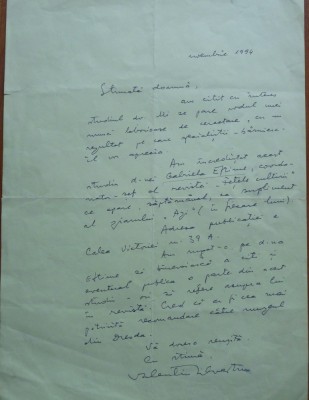 noiembrie 1996
Stimată doamnă,
am citit cu interes
studiul dv. Mi se pare rodul unei
munci laborioase de cercetare, cu un
rezultat pe care specialiștii
îl vor aprecia.
Am încredințat acest
studiu d-nei Gabriela Eftimie,
șef al revistei
ce apare săptămânal, ca supliment
al ziarului "Azi" (în fiecare luni)
Adresa publicației e
Calea Victoriei nr. 39 A.
Am rugat-o pe d-na
Eftimie să binevoiască a citi și
eventual publica o parte din acest
studiu - ori să refere asupra lui
în revistă. Cred că ar fi cea mai
potrivită recomandare către muzeul
din Dresda.
Vă doresc reușită
Cu stimă,
Valentin Silvestru